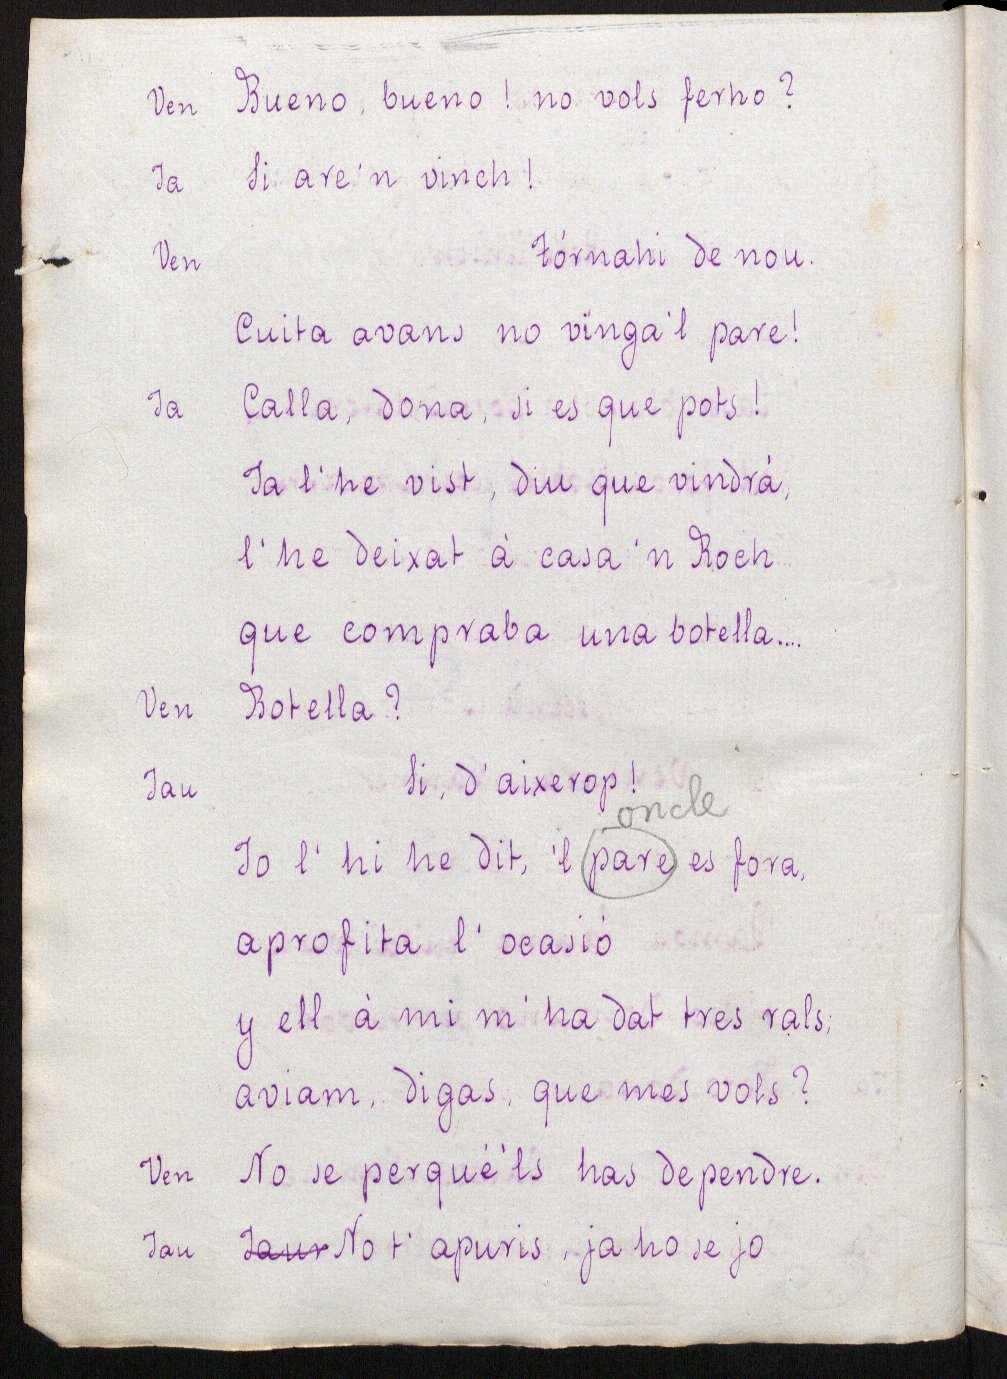 Ven Bueno, bueno! no vols ferho?
Ja Si are'n vinch!
Ven Tórnahi de nou.
Cuita avans no vinga'l pare!
Ja Calla, dona, si es que pots!
Ja l'he vist, diu que vindrá,
l'he deixat á casa'n Roch
que compraba una botella....
Ven Botella?
Jau Si, d'aixerop!
oncle
Jo l'hi he dit, 'l pare es fora,
aprofita l'ocasió
y ell á mi m'ha dat tres rals;
aviam, digas, que mes vols?
Ven No se perqué'ls has dependre.
Jau Jaur No t'apuris, ja ho se jo